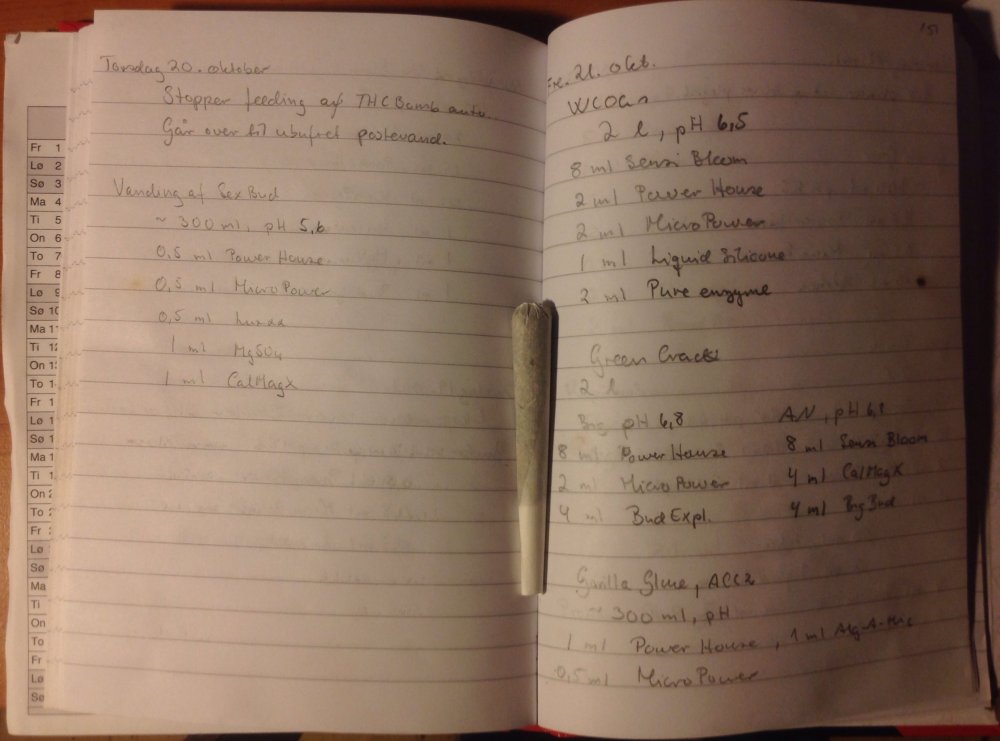 Torsdag 20. oktober
Stopper feeding af THC Bomb auto.
Går over til ubufret postevand.
Vanding af SexBud
~ 300 ml, pH 5,6
0,5 ml Power House
0,5 ml MicroPower
0,5 ml
1 ml MgSO4
1 ml CalMagX
Fr 1
Lø 2
Sø 3
Ma 4
Ti 5
On 6
To 7
Fr 8
Lø 9
Sø 10
Ma 11
Ti 12
On 13
To 1
Fr 1
Lø 1
Sø 1
Ma 1
Ti 1
On 2
To 2
Fr 2
Lø
Sø
Ma
Ti
On
To
Fr
Lø
Sø
151
Fre. 21. okt.
2 l, pH 6,5
8 ml Sensi Bloom
2 ml Power House
2 ml MicroPower
1 ml Liquid Silicone
2 ml Pure enzyme
Green Crack
2 l
pH 6,8 AN, pH 6,8
8 ml Power House 8 ml Sensi Bloom
2 ml Micro Power 4 ml CalMagX
4 ml Bud Expl. 4 ml Big Bud
Gorilla Glue,
~ 300 ml, pH
1 ml Power House, 1 ml Alg-A-Mic
0,5 ml MicroPower